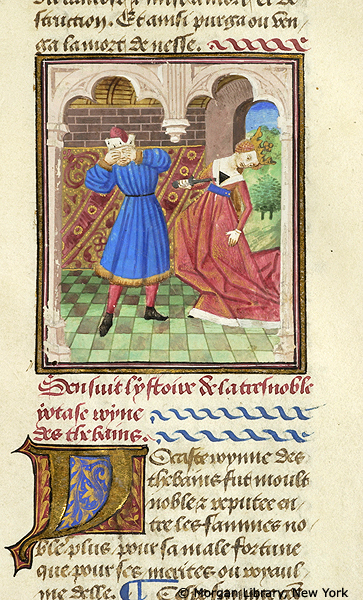 struction. Et ainsi purga ou ven
ga la mort de nesse.
Sensuit lystoire de la tresnoble
yocase royne
des thebains.
Iocaste royne des
thebains fut moult
noble & reputee en
tre les fammes no
ble plus pour sa male fortune
que pour ses merites ou royaul
me delle.
© Morgan Library, New York